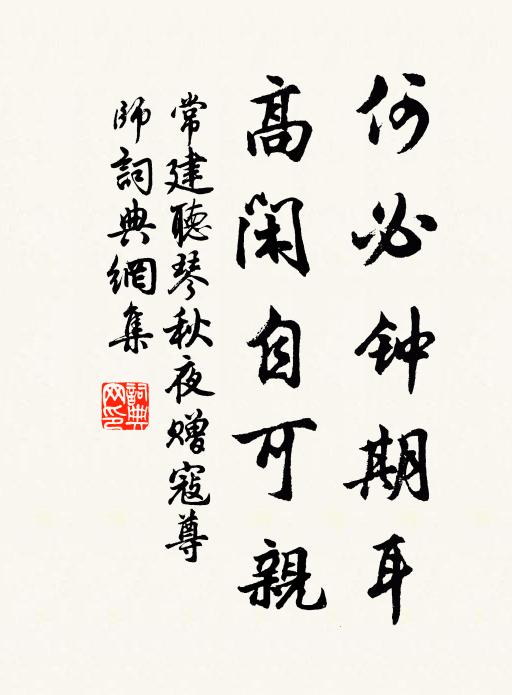 何必钟期耳
高闲自可親
常建聽琴秋夜赠寇尊
師詞典網集
詞典
网印